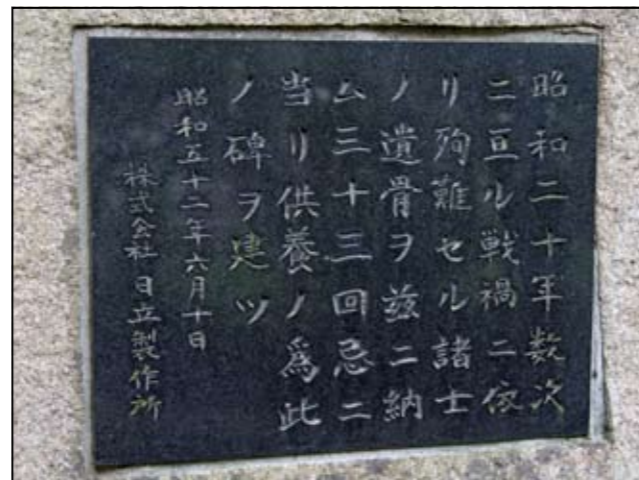 昭和二十年数次
ニ亘ル戦禍ニ依
リ殉難セル諸士
ノ遺骨ヲ玆ニ納
ム三十三回忌ニ
当リ供養ノ為此
ノ碑ヲ建ツ
昭和五十二年六月十日
株式会社日立製作所